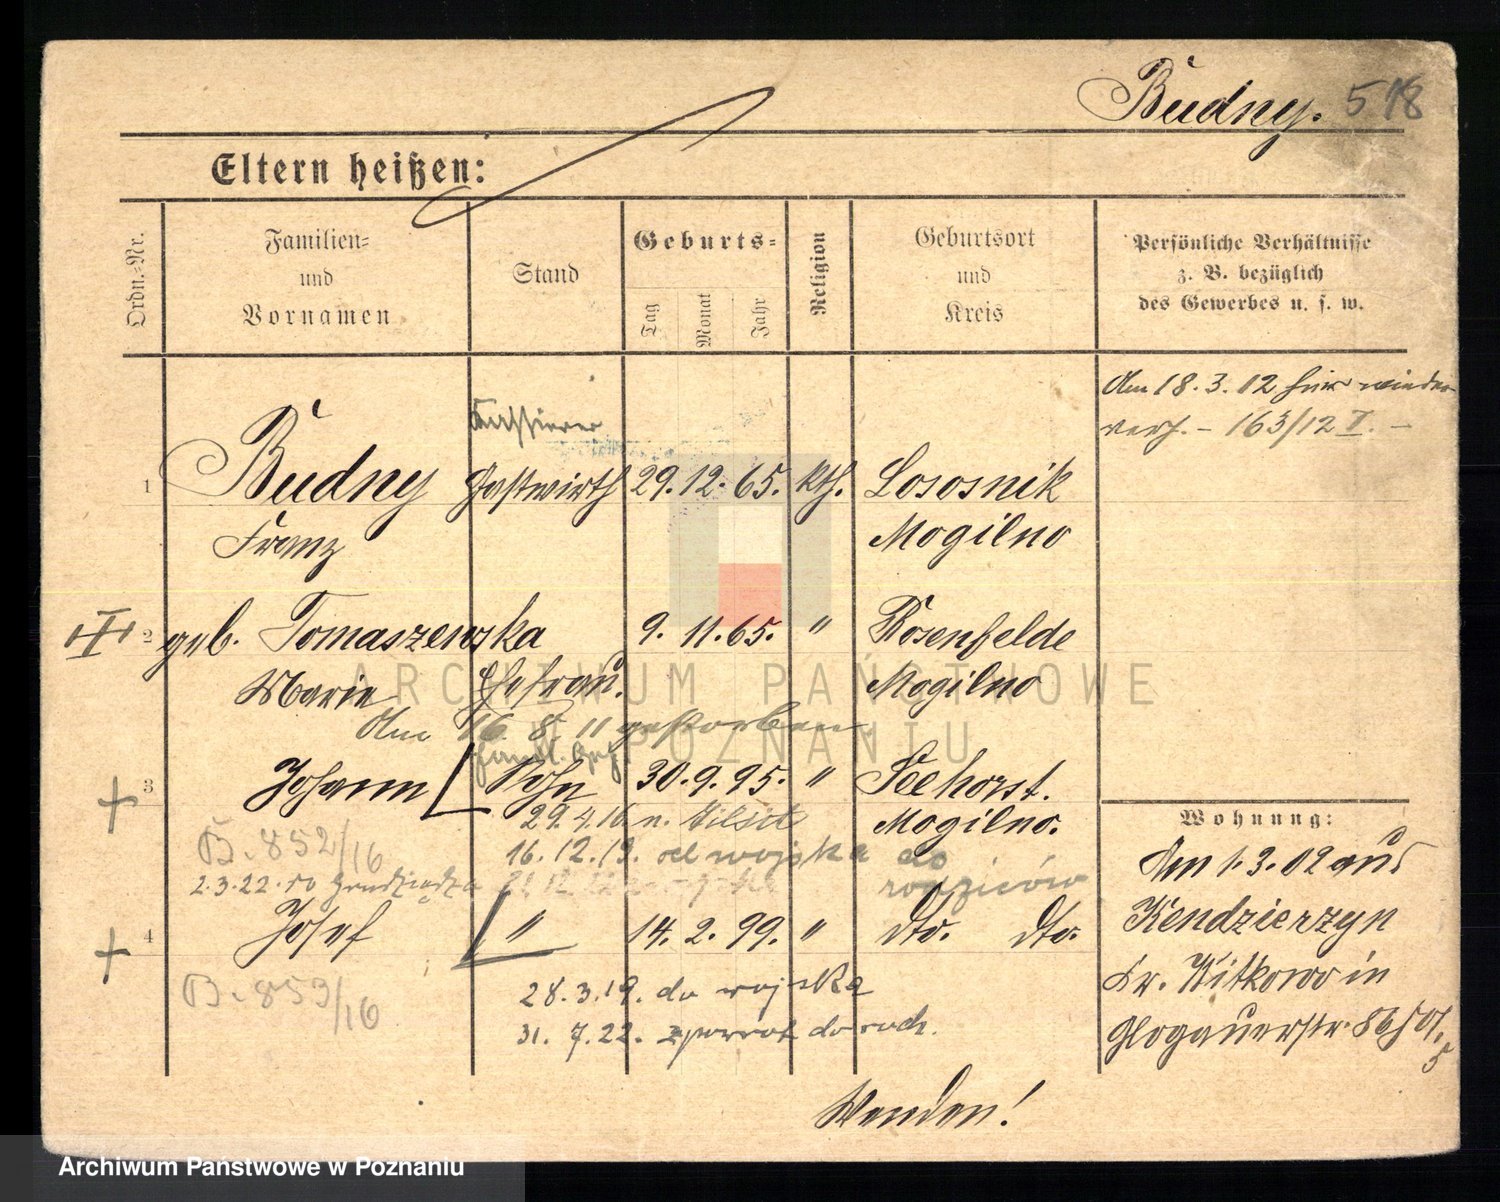 Budny. 518
Eltern heißen:
Ordn.-Nr.
Familien-
und
Vornamen
Stand
Geburts-
Tag
Monat
Jahr
Religion
Geburtsort
und
Kreis
Persönliche Verhältnisse
z. B. bezüglich
des Gewerbes u. s. w.
Am 18. 3. 12 hier wieder
verh. - 163/12 I. -
Kassierer
1 Budny Gastwirth 29. 12. 65. kth. Lososnik
Franz Mogilno
2 geb. Tomaszewska 9. 11. 65. " Rosenfelde
Marie Ehefrau. Mogilno
Am 16. 8. 11 gestorben
Handl. Geh.
3 Johann Sohn 30. 9. 95. " Seehorst.
29. 4. 16 n. Tilsit Mogilno.
B. 852/16 16. 12. 19. od wojska do
2. 3. 22. do Grudziądza rodziców
4 Josef " 14. 2. 99. " dto. dto.
B. 853/16 28. 3. 19. do wojska
31. 7. 22. zpowrot do rodz.
Wohnung:
Am 1. 3. 02 aus
Kendzierzyn
Kr. Witkowo in
Glogauerstr. 86
Wenden!
ARCHIWUM PAŃSTWOWE
W POZNANIU
Archiwum Państwowe w Poznaniu